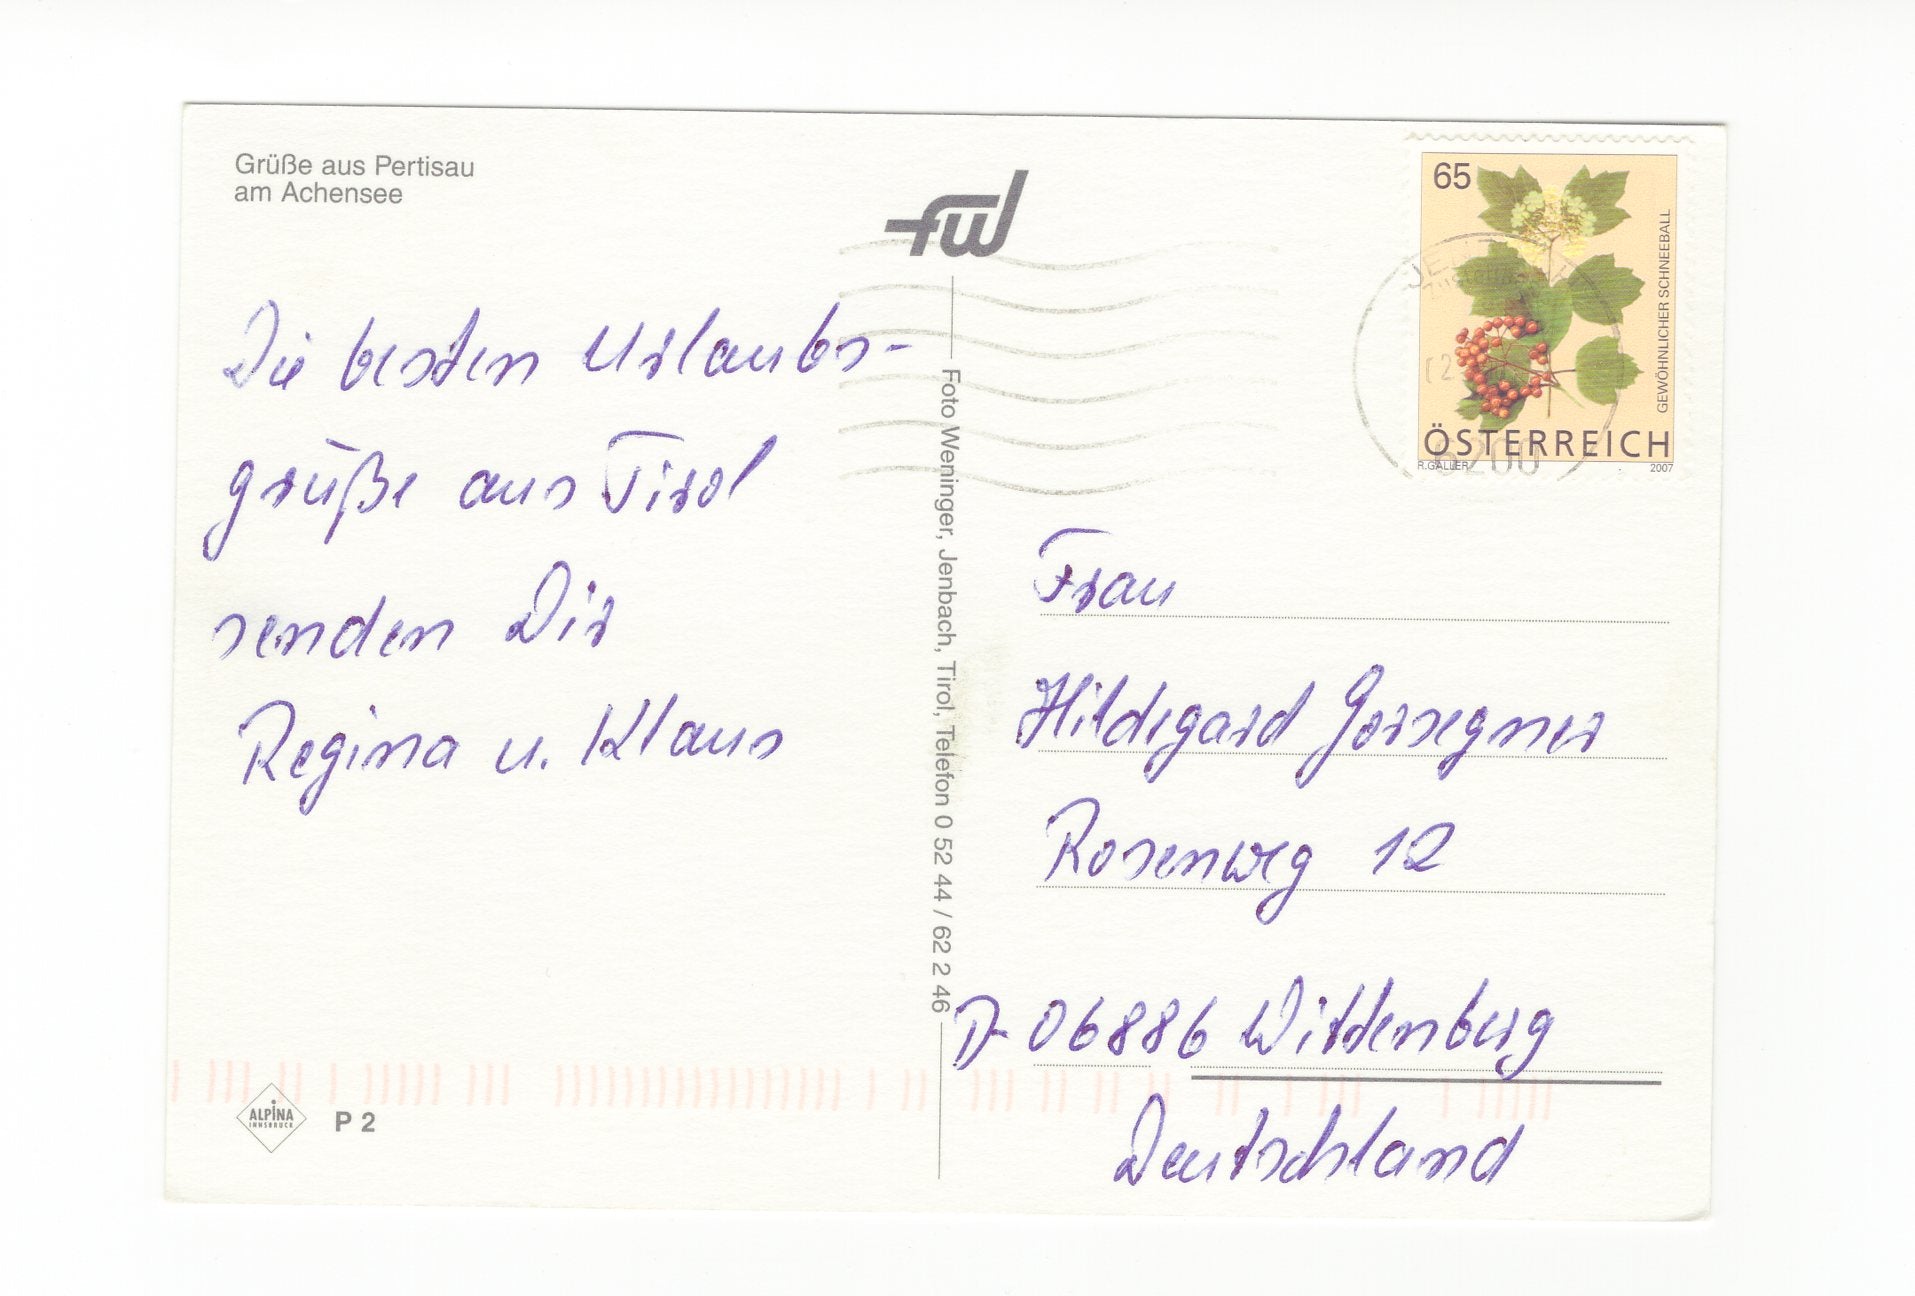 Grüße aus Pertisau
am Achensee
fwj
65
GEWÖHNLICHER SCHNEEBALL
ÖSTERREICH
R.GALLER 2007
6200
Die besten Urlaubs-
grüße aus Tirol
senden Dir
Regina u. Klaus
Foto Weninger, Jenbach, Tirol, Telefon 0 52 44 / 62 2 46
Frau
Hildegard Gorsegner
Rosenweg 12
D- 06886 Wittenberg
Deutschland
ALPINA
INNSBRUCK
P 2